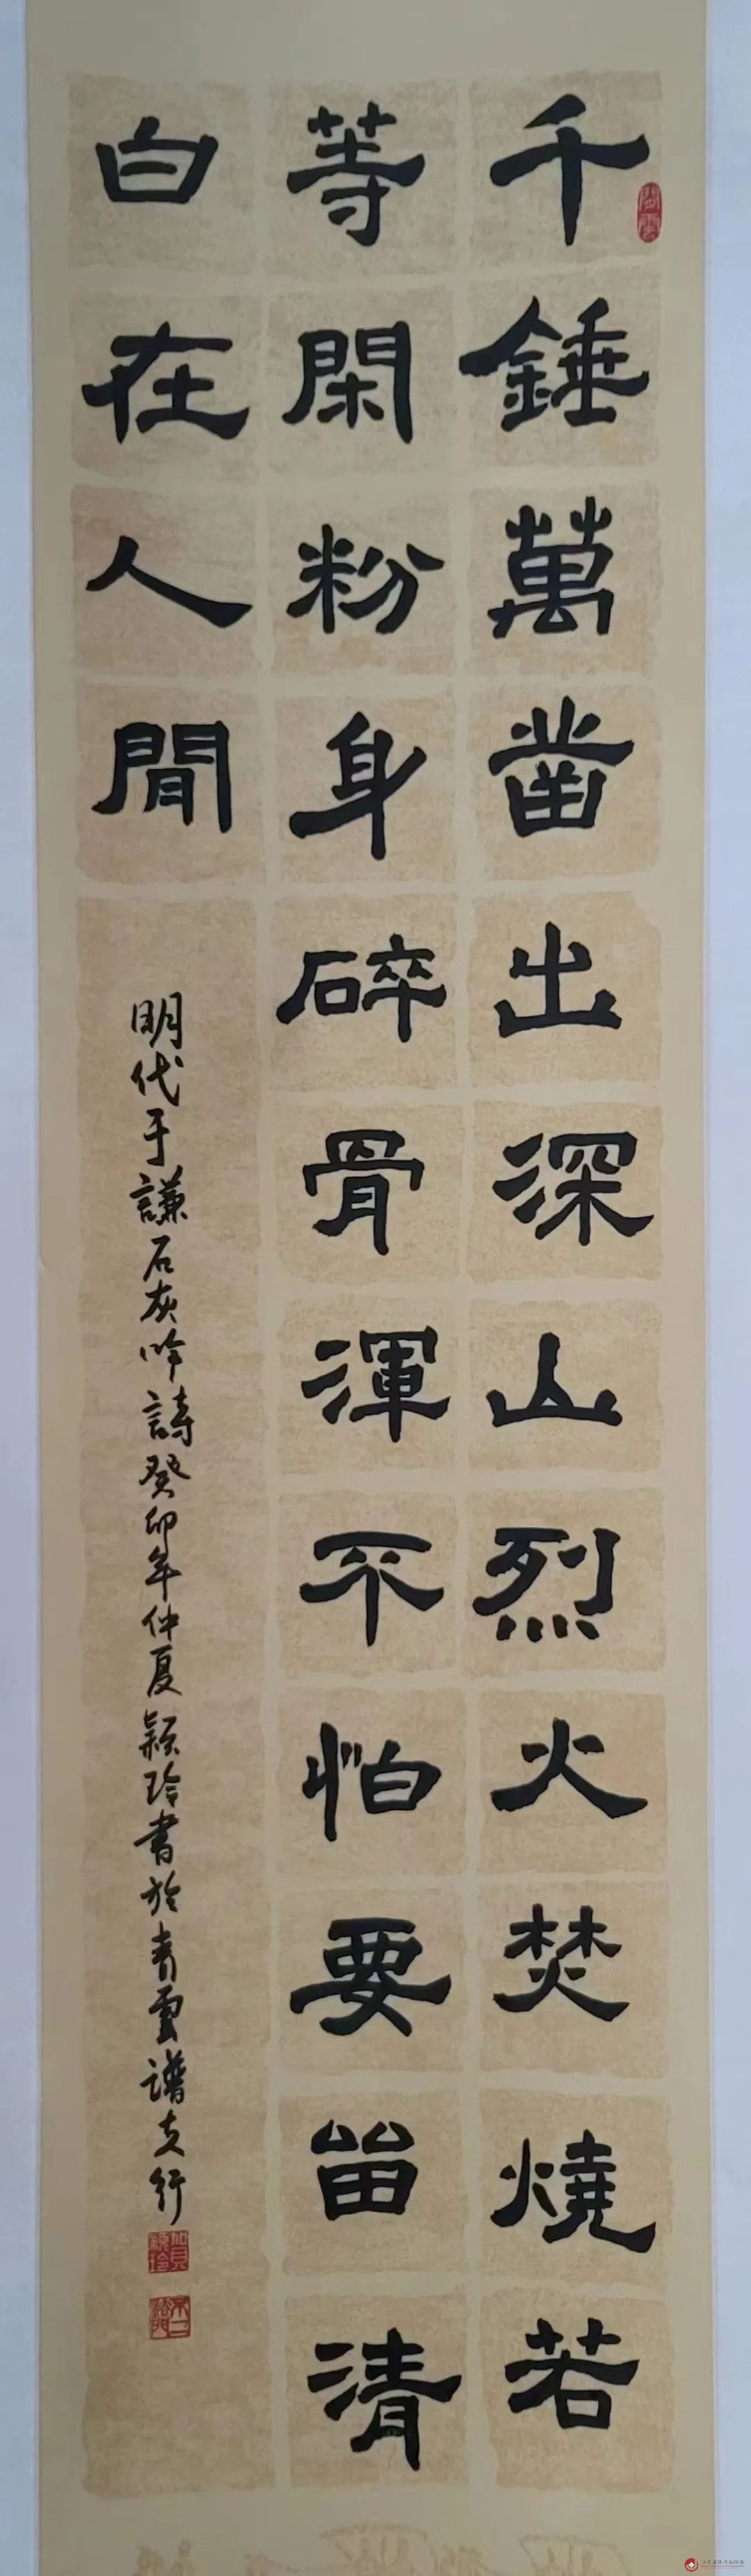 千錘萬凿出深山烈火焚燒若
等閑粉身碎骨渾不怕要畱清
白在人間
明代于謙石灰吟詩癸卯年仲夏颖玲書於青雲譜支行